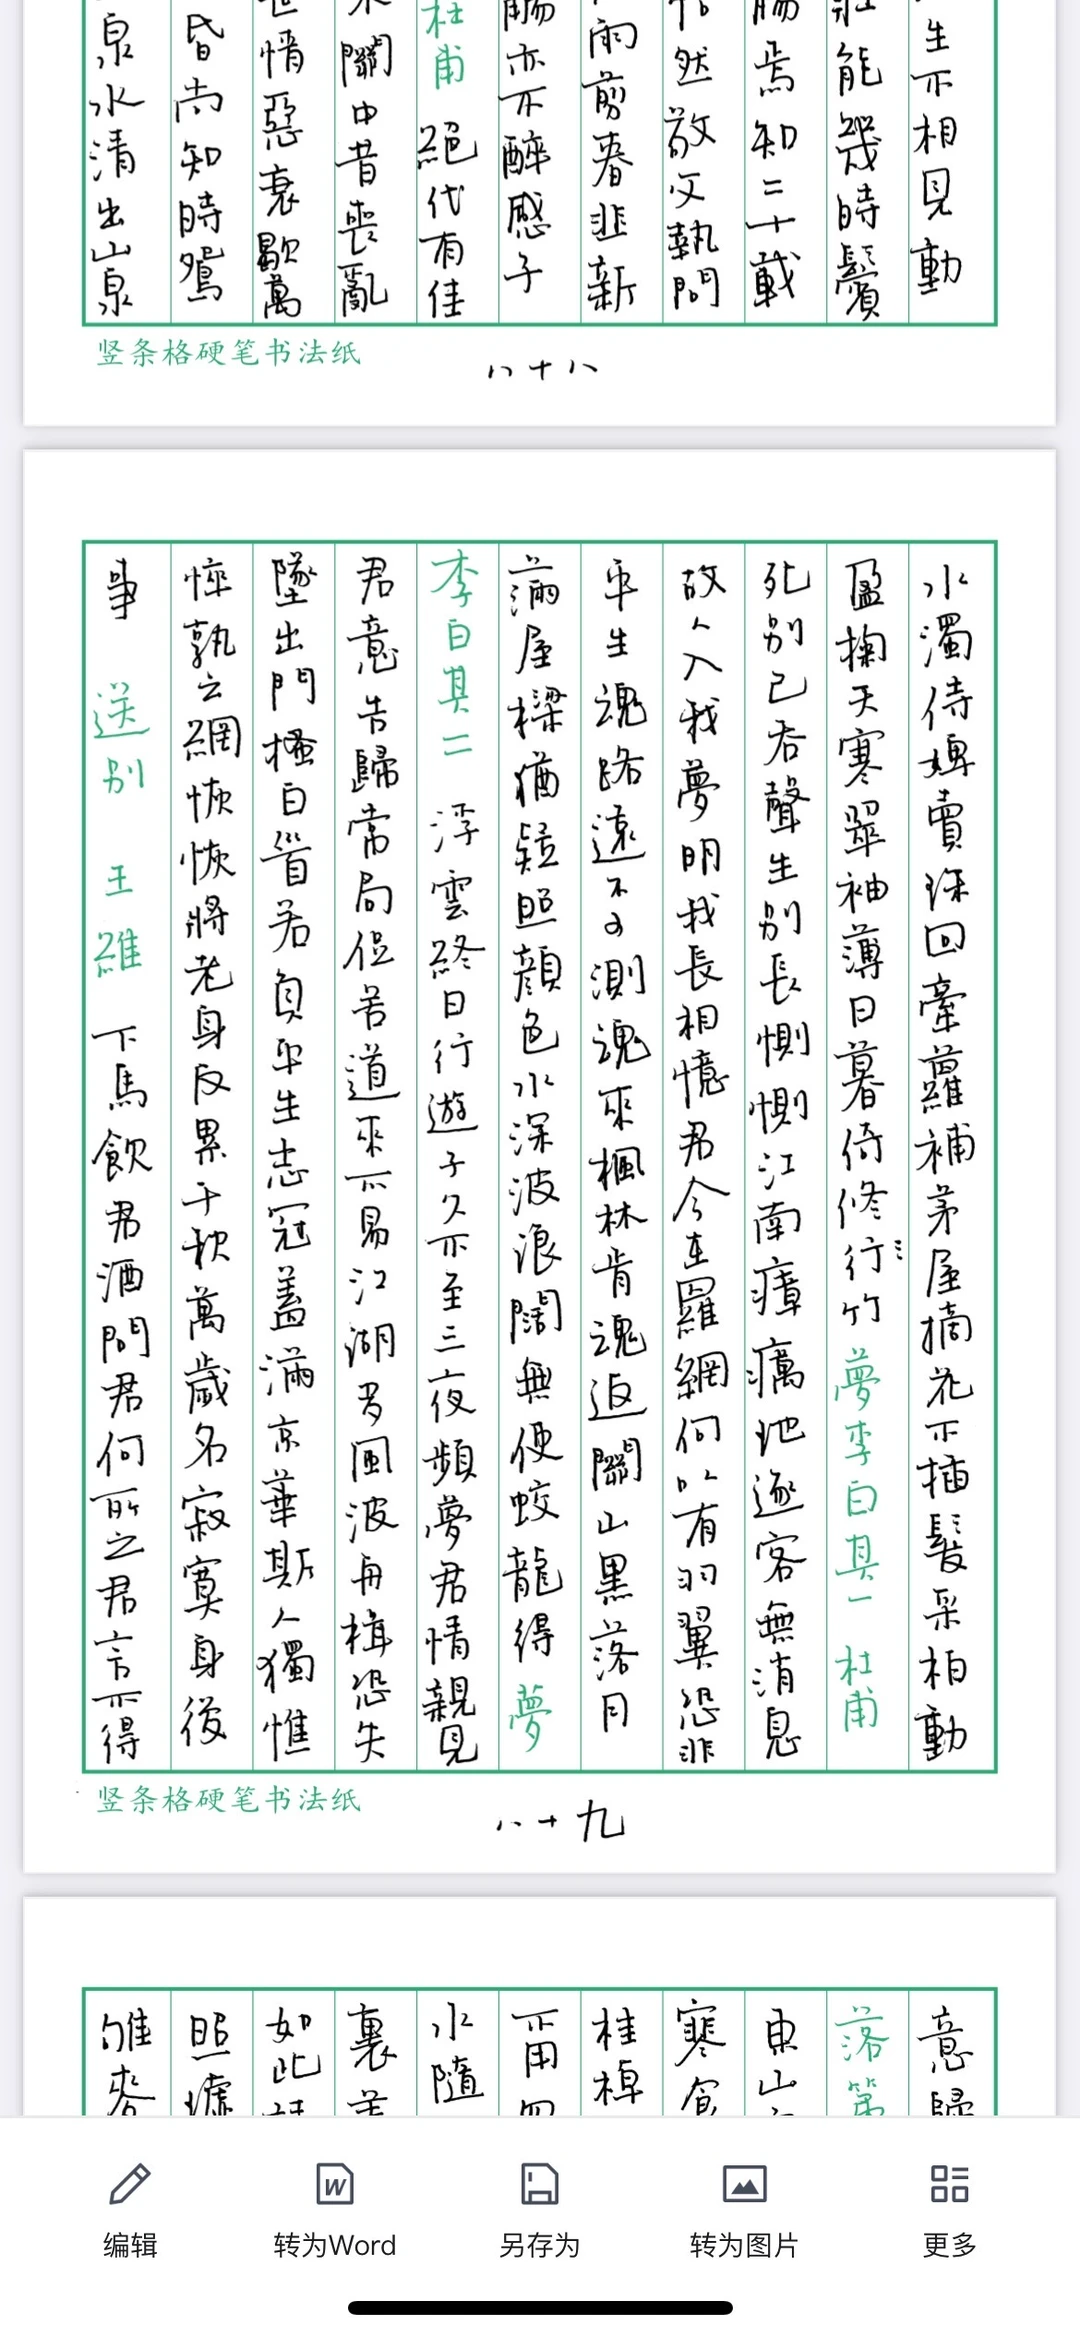 生不相見動
能幾時鬢
腸焉知二十載
然敬父執問
雨剪春韭新
觴亦不醉感子
杜甫 絕代有佳
關中昔喪亂
世情惡衰歇萬
昏尚知時鴛
泉水清出山泉
竖条格硬笔书法纸
八十八
水濁侍婢賣珠回牽蘿補茅屋摘花不插髮采柏動
盈掬天寒翠袖薄日暮倚修行竹 夢李白其一 杜甫
死別已吞聲生別長惻惻江南瘴癘地逐客無消息
故人入我夢明我長相憶君今在羅網何以有羽翼恐非
平生魂路遠不可測魂來楓林青魂返關山黑落月
滿屋樑猶疑照顏色水深波浪闊無使蛟龍得 夢
李白其二 浮雲終日行遊子久不至三夜頻夢君情親見
君意告歸常局促苦道來不易江湖多風波舟楫恐失
墜出門搔白首若負平生志冠蓋滿京華斯人獨憔
悴孰云網恢恢將老身反累千秋萬歲名寂寞身後
事 送別 王維 下馬飲君酒問君何所之君言不得
竖条格硬笔书法纸
八十九
意歸
落第
東山
寒食
桂棹
而用
水隨
裏
如此
照墟
雉
编辑
转为Word
另存为
转为图片
更多